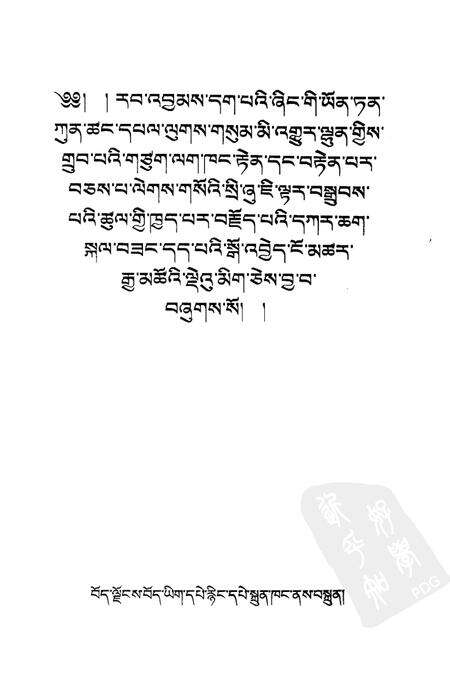 ༄༅། །རབ་འབྱམས་དག་པའི་ཞིང་གི་ཡོན་ཏན་
ཀུན་ཚང་དཔལ་ལུགས་གསུམ་མི་འགྱུར་ལྷུན་གྱིས་
གྲུབ་པའི་གཙུག་ལག་ཁང་རྟེན་དང་བརྟེན་པར་
བཅས་པ་ལེགས་གསོའི་སྲི་ཞུ་ཇི་ལྟར་བསྒྲུབས་
པའི་ཚུལ་གྱི་ཁྱད་པར་བརྗོད་པའི་དཀར་ཆག་
སྐལ་བཟང་དད་པའི་སྒོ་འབྱེད་ངོ་མཚར་
རྒྱ་མཚོའི་ལྡེའུ་མིག་ཅེས་བྱ་བ་
བཞུགས་སོ། །
བོད་ལྗོངས་བོད་ཡིག་དཔེ་རྙིང་དཔེ་སྐྲུན་ཁང་ནས་བསྐྲུན།
PDG